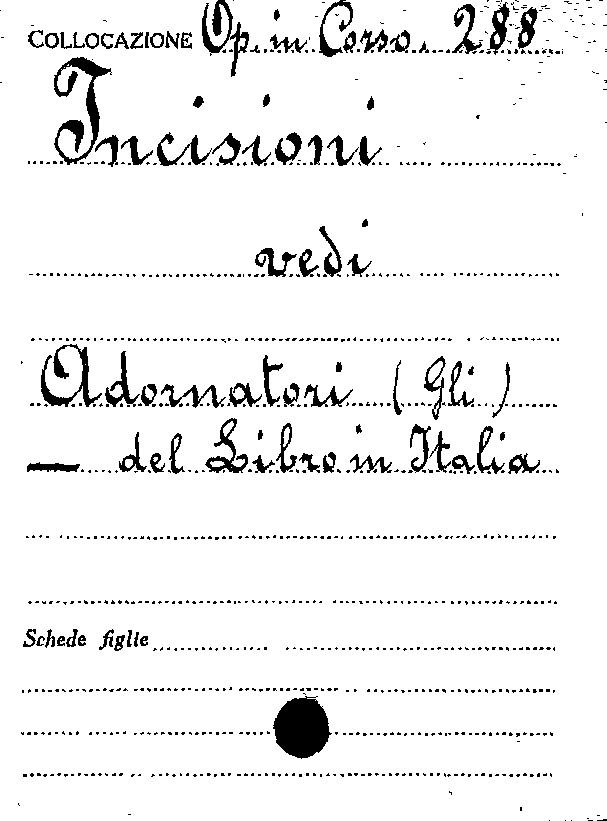 COLLOCAZIONE Op. in Corso. 288
Incisioni
vedi
Adornatori (Gli)
— del Libro in Italia
Schede figlie